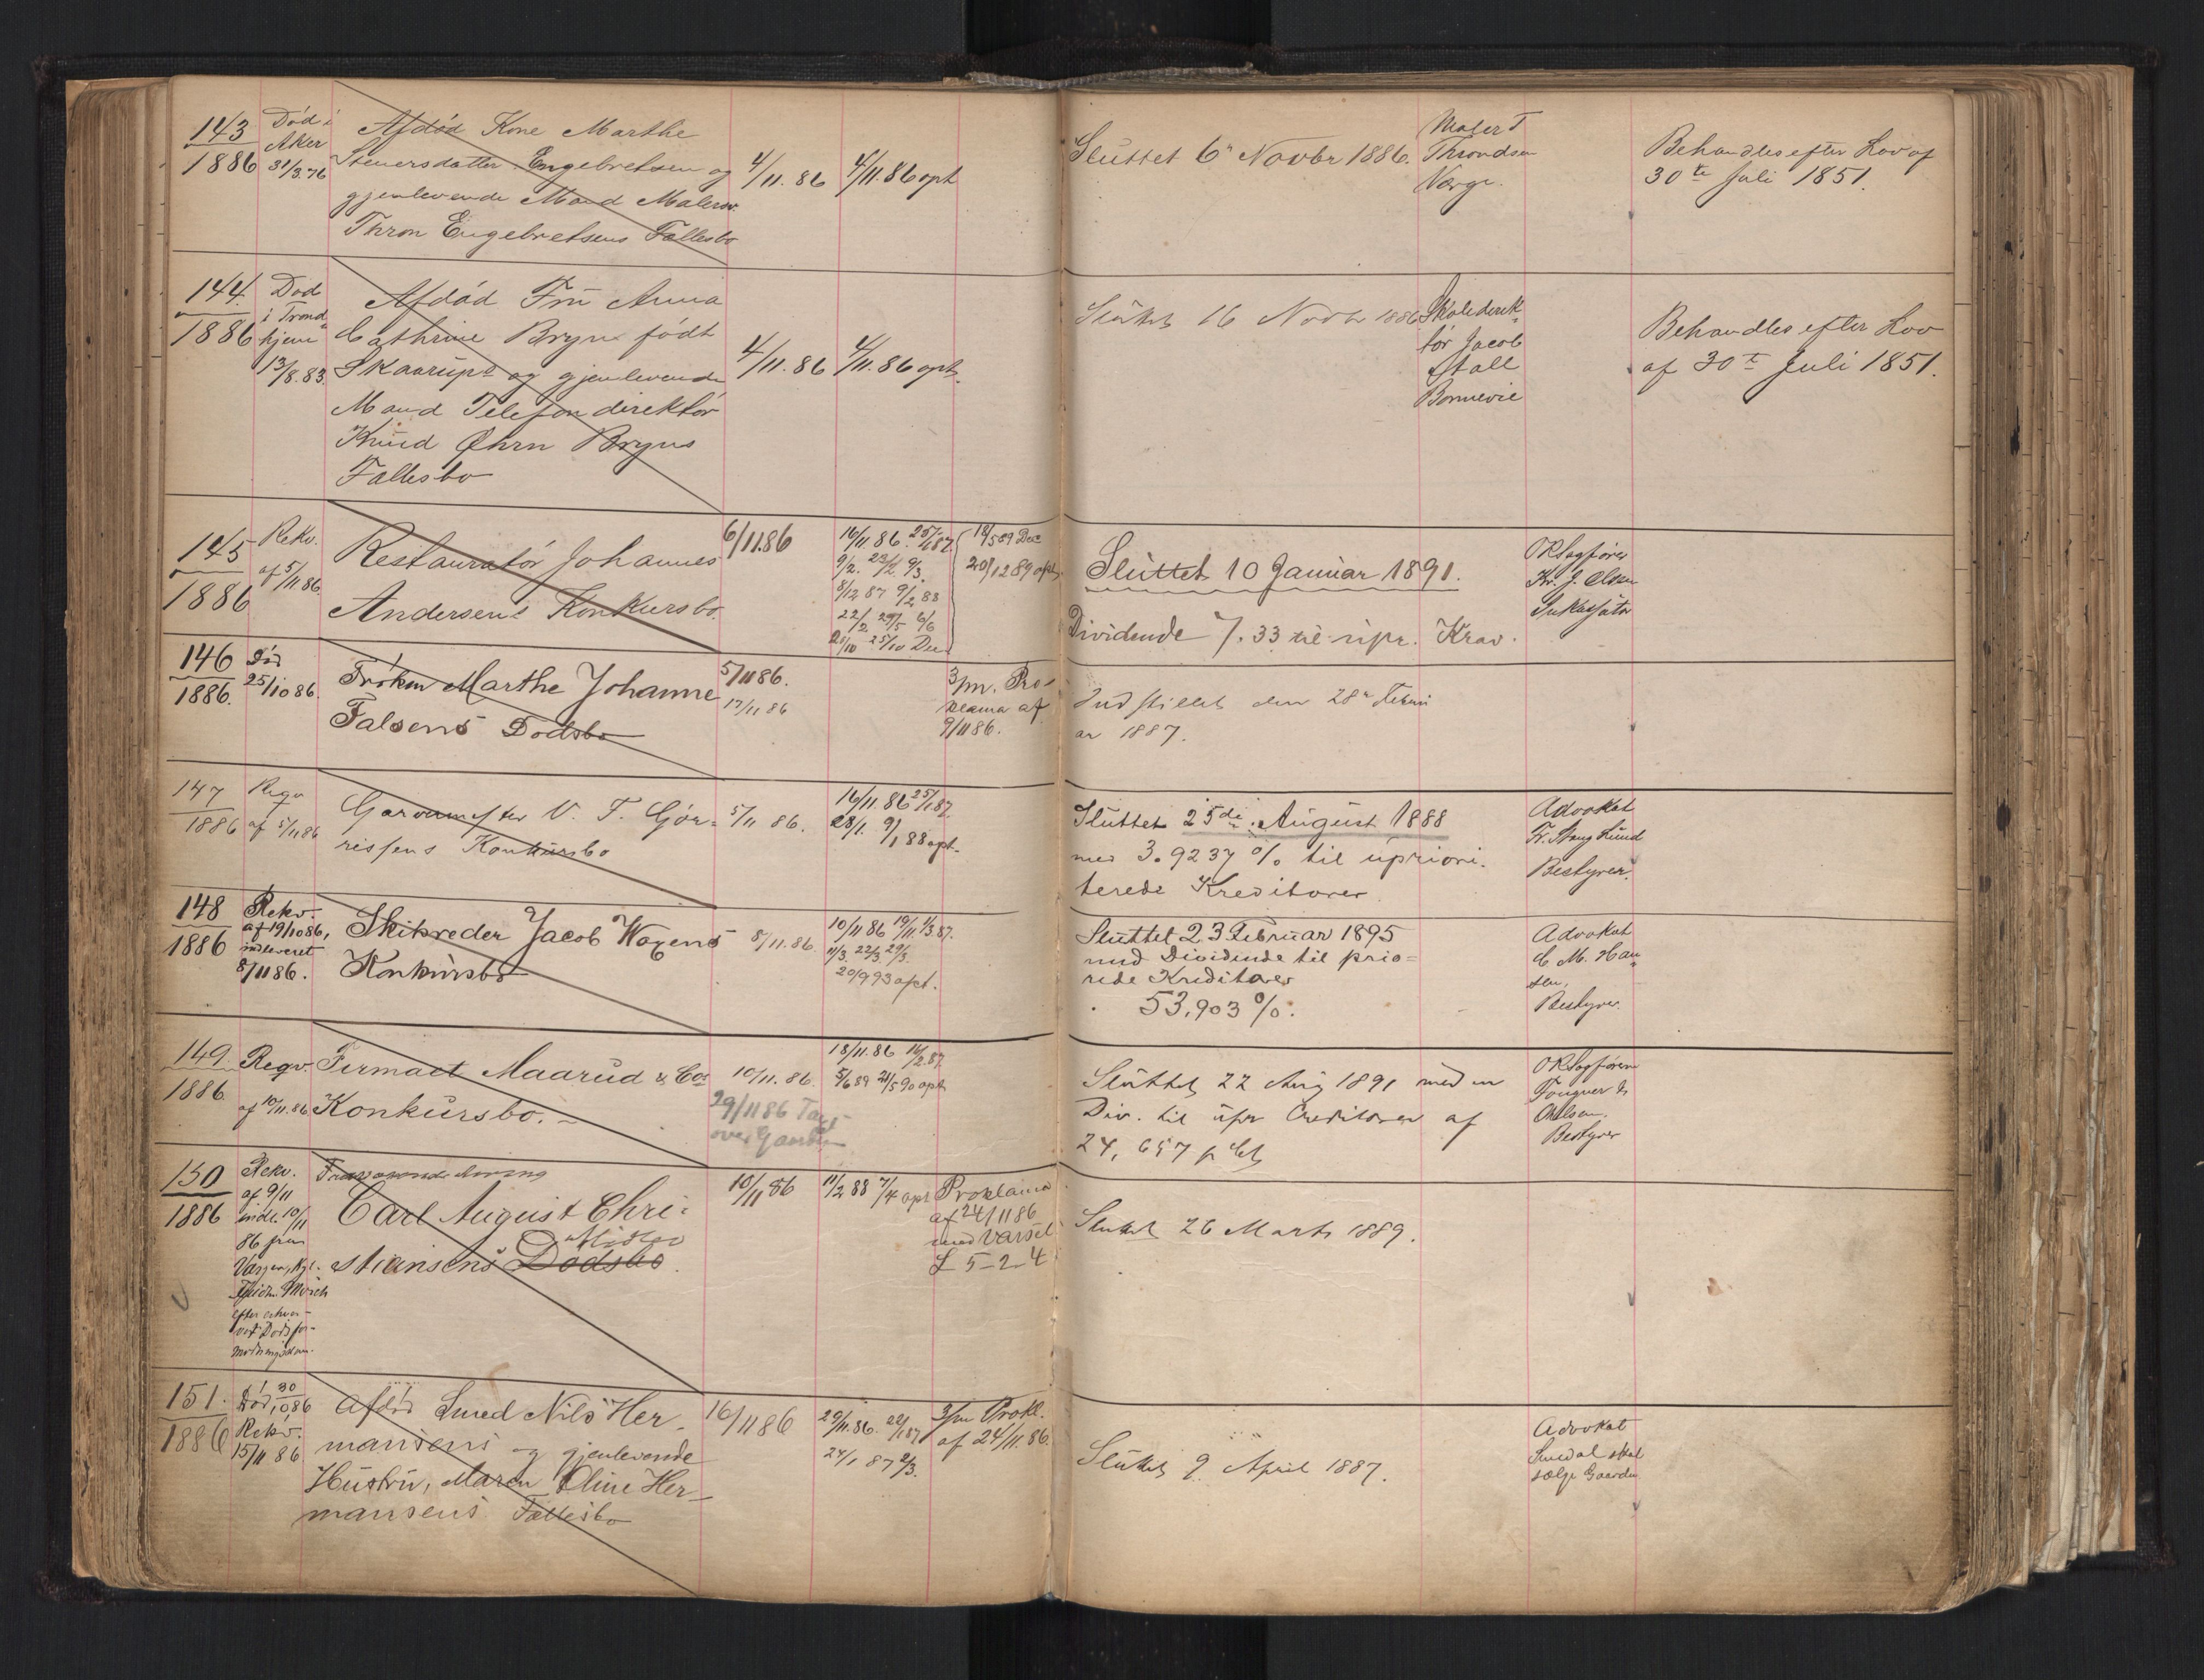 143
1886
Død i
Aker
31/3.76
Afdød Kone Marthe
Stenersdatter Engebretsen og
gjenlevende Mand Malersv.
Thron Engebretsens Fællesbo
4/11. 86
4/11.86 opt
Sluttet 6te Novbr 1886.
Maler T
Throndsen
Værge.
Behandles efter Lov af
30te Juli 1851.
144
1886
Død
i Trond-
hjem
13/8.83.
Afdød Fru Anna
Cathrine Bryn født
Skaarup og gjenlevende
Mand Telefondirektør
Knud Øhrn Bryns
Fællesbo
4/11. 86
4/11.86 opt.
Sluttet 16 Novbr 1886
Skoledirek-
tør Jacob
Aall
Bonnevie
Behandles efter Lov
af 30te Juli 1851.
145
1886
Rekv.
af 5/11 86.
Restauratør Johannes
Andersens Konkursbo.
6/11.86
16/11.86. 25/1 87.
9/2. 23/2. 9/3.
8/12 87 9/2 88
22/2 29/5 6/6
21/10 25/10 Dec
18/5 89 Dec
20/12 89 opt.
Sluttet 10 Januar 1891.
Dividende 7.33 til upr. Krav.
ORSagfører
Kr. J. Olsen
Inkassator
146
1886.
Død
25/10 86.
Frøken Marthe Johanne
Falsens Dødsbo
5/11 86.
17/11 86
3/m. Pro-
klama af
9/11 86.
Indstillet den 28de Febru
ar 1887.
147
1886
Reqv
af 5/11 86
Garvermester V. T. Gør-
rissens Konkursbo
5/11 86.
16/11.86 25/1 87.
28/1. 9/1 88 opt.
Sluttet 25de August 1888
med 3.9237 % til upriori-
terede Kreditorer
Advokat
Fr. Stang Lund
Bestyrer.
148
1886
Rekv.
af 19/10 86,
indleveret
8/11 86.
Skibsreder Jacob Woxens
Konkursbo
8/11.86.
10/11 86 19/11. 1/3 87.
11/3. 22/3. 29/3.
20/9 93 opt.
Sluttet 23 Februar 1895
med Dividende til prio-
rede Kreditorer
53,903 %.
Advokat
C. M. Han-
sen,
Bestyrer.
149.
1886
Reqv.
af 10/11.86
Firmaet Maarud & Co
Konkursbo.
10/11. 86.
29/11 86 Taxt
over Gaarden
18/11.86 16/2 87.
5/6 89 21/5 90 opt
Sluttet 22 Aug 1891 med en
Div. til upr Creditorer af
24,657 pCt
ORSagførerne
Fougner &
Ohlsen.
Bestyrer
150
1886
Rekv.
af 9/11
indl. 10/11
86 fra
Værgen, Kgl.
Dødsfor-
Fraværende
Carl August Chri-
stiansens Dødsbo.
Midler
10/11 86
11/2 88 7/4 opt
Proklama
af 24/11 86
med Varsel
L 5-2-4
Sluttet 26 Marts 1889.
151.
1886
Død 30/10 86
Rekv.
15/11 86
Afdød Smed Nils Her-
mansens og gjenlevende
Hustru, Maren Oline Her-
mansens Fællesbo
16/11 86
29/11.86. 22/1 87
24/1 87 2/3.
3/m Prokl.
af 24/11.86.
Sluttet 9. April 1887.
Advokat
Smedal skal
sælge Gaarden